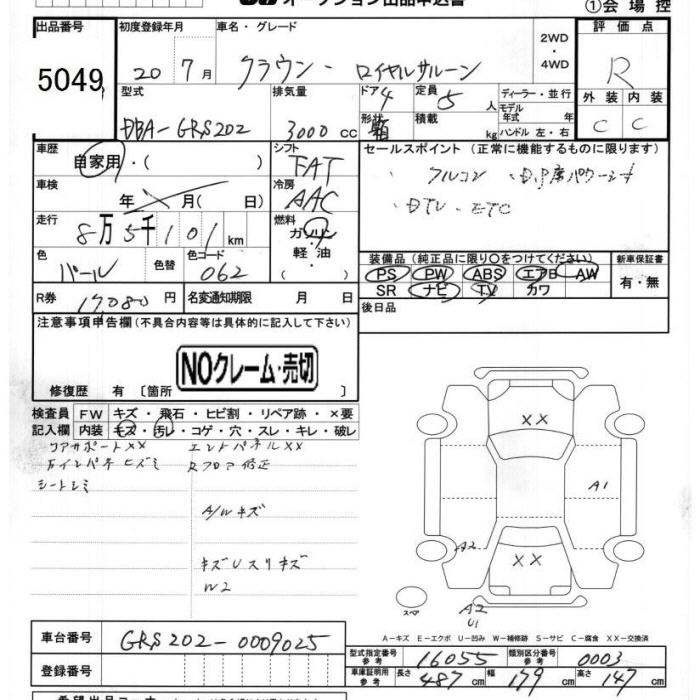 オークション出品申込書
①会場控
出品番号 初度登録年月 車名・グレード 2WD・4WD 評価点
5049 20 7月 クラウン - ロイヤルサルーン R
型式 排気量 ドア 4 定員 5人 ディーラー・並行 外装 内装
DBA-GRS202 3000cc 形状 箱 積載 kg モデル年式 年 ハンドル 左・右 C C
車歴 自家用・( ) シフト FAT セールスポイント(正常に機能するものに限ります)
車検 年 月( 日) 冷房 AAC ・フルコン ・D.P席パワーシート
走行 8万5千101km 燃料 ガソリン・軽油・ ・DTV・ETC
色 パール 色替 色コード 062
装備品(純正品に限り○をつけてください) 新車保証書
PS PW ABS エアB AW 有・無
SR ナビ TV カワ
R券 17080円 名変通知期限 月 日 後日品
注意事項申告欄(不具合内容等は具体的に記入して下さい)
NOクレーム・売切
修復歴 有〔箇所 〕
検査員 FW キズ・飛石・ヒビ割・リペア跡・×要
記入欄 内装 キズ・汚レ・コゲ・穴・スレ・キレ・破レ
コアサポートXX エンドパネルXX
インパネヒズミ Rフロア修正
シートシミ
A/Wキズ
キズUスリキズ
W2
XX
A1
A2
XX
スペア
A2
U1
A-キズ E-エクボ U-凹み W-補修跡 S-サビ C-腐食 XX-交換済
車台番号 GRS202-0009025
型式指定番号 参考 16055 類別区分番号 参考 0003
登録番号 車庫証明用 参考 長さ 487cm 幅 179cm 高さ 147cm
希望出品コーナー